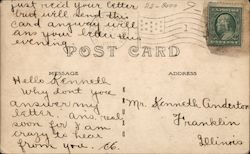 just rec'd your letter
but will send this
card anyway will
ans your letter this
evening.
POST CARD
MESSAGE
ADDRESS
Hello Kenneth
Why dont you
answer my
letter. ans. real
soon for I am
crazy to hear
from you. CC.
Mr. Kenneth Anderton
Franklin
Illinois